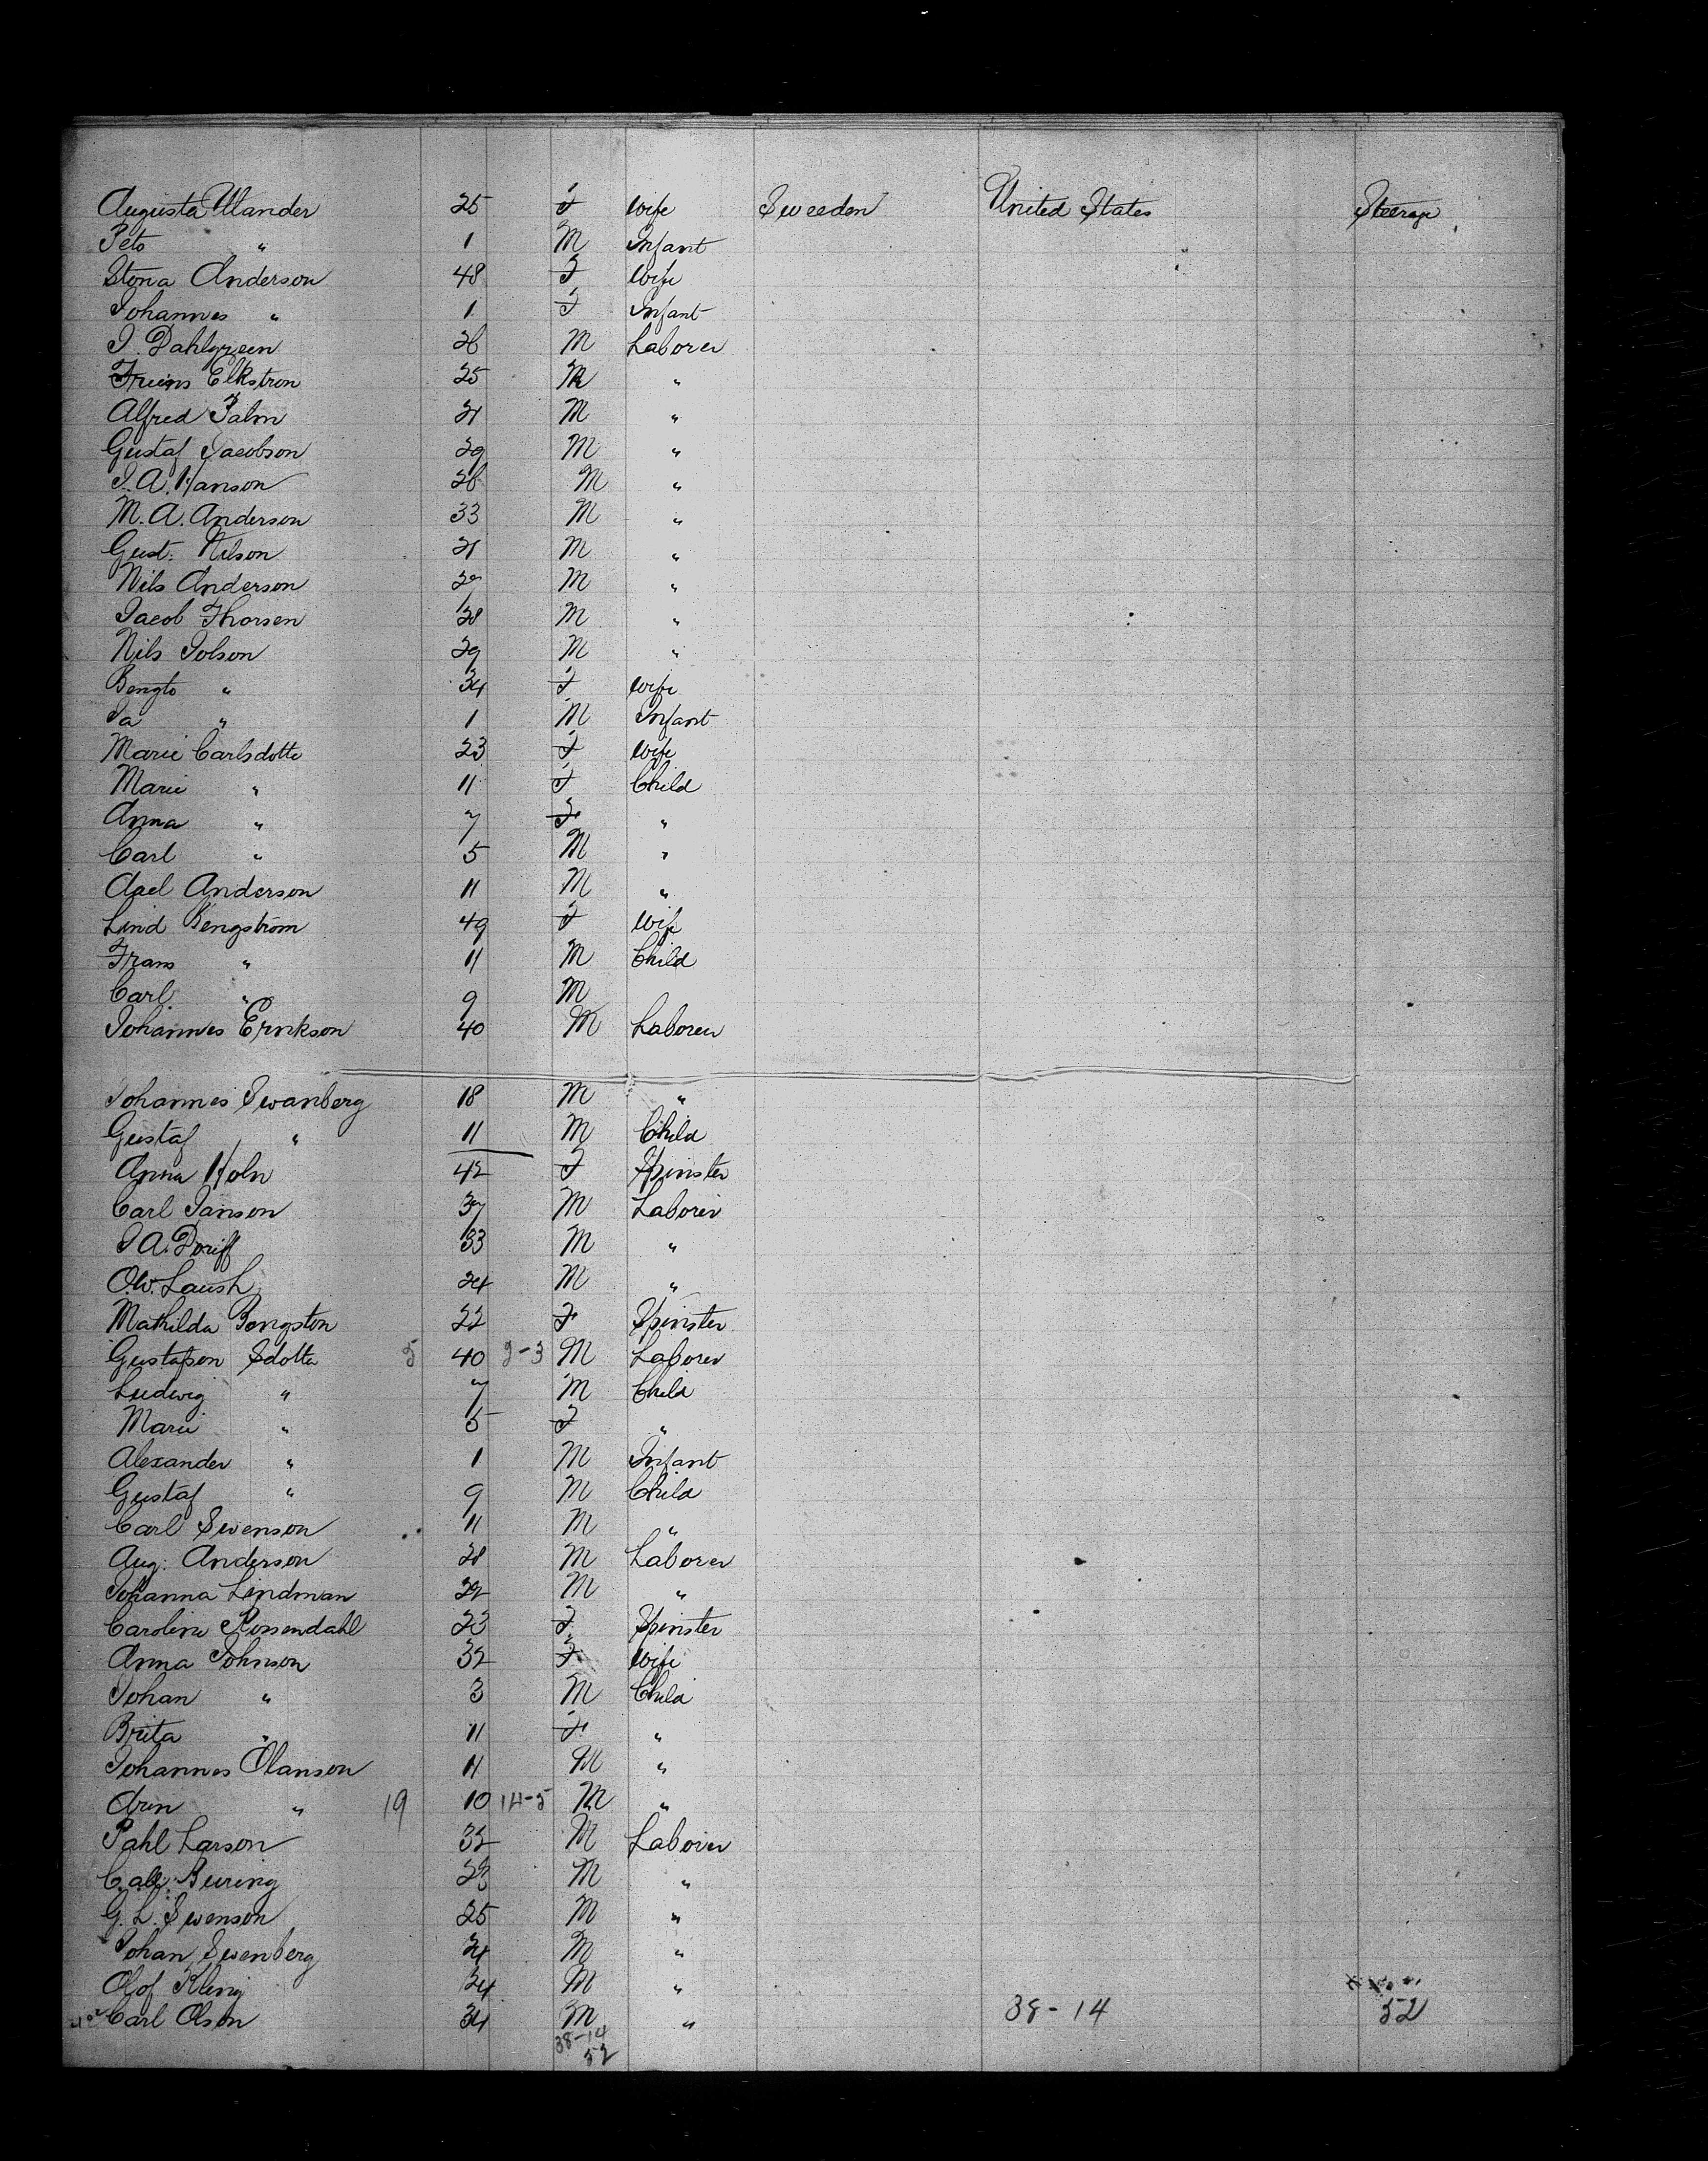 Augusta Ulander 25 F wife Sweeden United States Steerage
Peto " 1 M Infant
Stona Anderson 48 F wife
Johannes " 1 F Infant
J. Dahlgreen 26 M Laborer
Elkstron 25 M "
Alfred Palm 21 M "
Gustaf Jacobson 29 M "
J. A. Hanson 26 M "
M. A. Anderson 33 M "
Gust. Nilson 21 M "
Nils Anderson M "
Jacob Thorsen 28 M "
Nils Jolson 29 M "
Bengto " 34 F wife
Ja " 1 M Infant
Marie Carlsdotte 23 F wife
Marie " 11 F Child
Anna " 7 F "
Carl " 5 M "
Axel Anderson 11 M "
Lind Bengstrom 49 F wife
Frans " 11 M Child
Carl " 9 M
Johannes Errikson 40 M Laborer
Johannes Swanberg 18 M "
Gustaf " 11 M Child
Anna Holn 42 F Spinster
Carl Janson 37 M Laborer
J A. Doriff 33 M "
O.W. Laush 24 M "
Mathilda Bengston 22 F Spinster
Gustafson Sdotta 5 40 2-3 M Laborer
Ludwig " 7 M Child
Marie " 5 F "
Alexander " 1 M Infant
Gustaf " 9 M Child
Carl Swenson 11 M "
Aug. Anderson 28 M Laborer
Johanna Lindman 22 M "
Caroline Rosendahl 23 F Spinster
Anna Johnson 32 F wife
Johan " 3 M Child
Brita " 11 F "
Johannes Olanson 11 M "
Arn " 19 10 14-5 M "
Pahl Larson 32 M Laborer
Buring M "
G. L. Swenson 25 M "
Johan Swenberg 24 M "
Olof Kling 24 M "
Carl Olson 34 M " 38-14 52
38-14
52